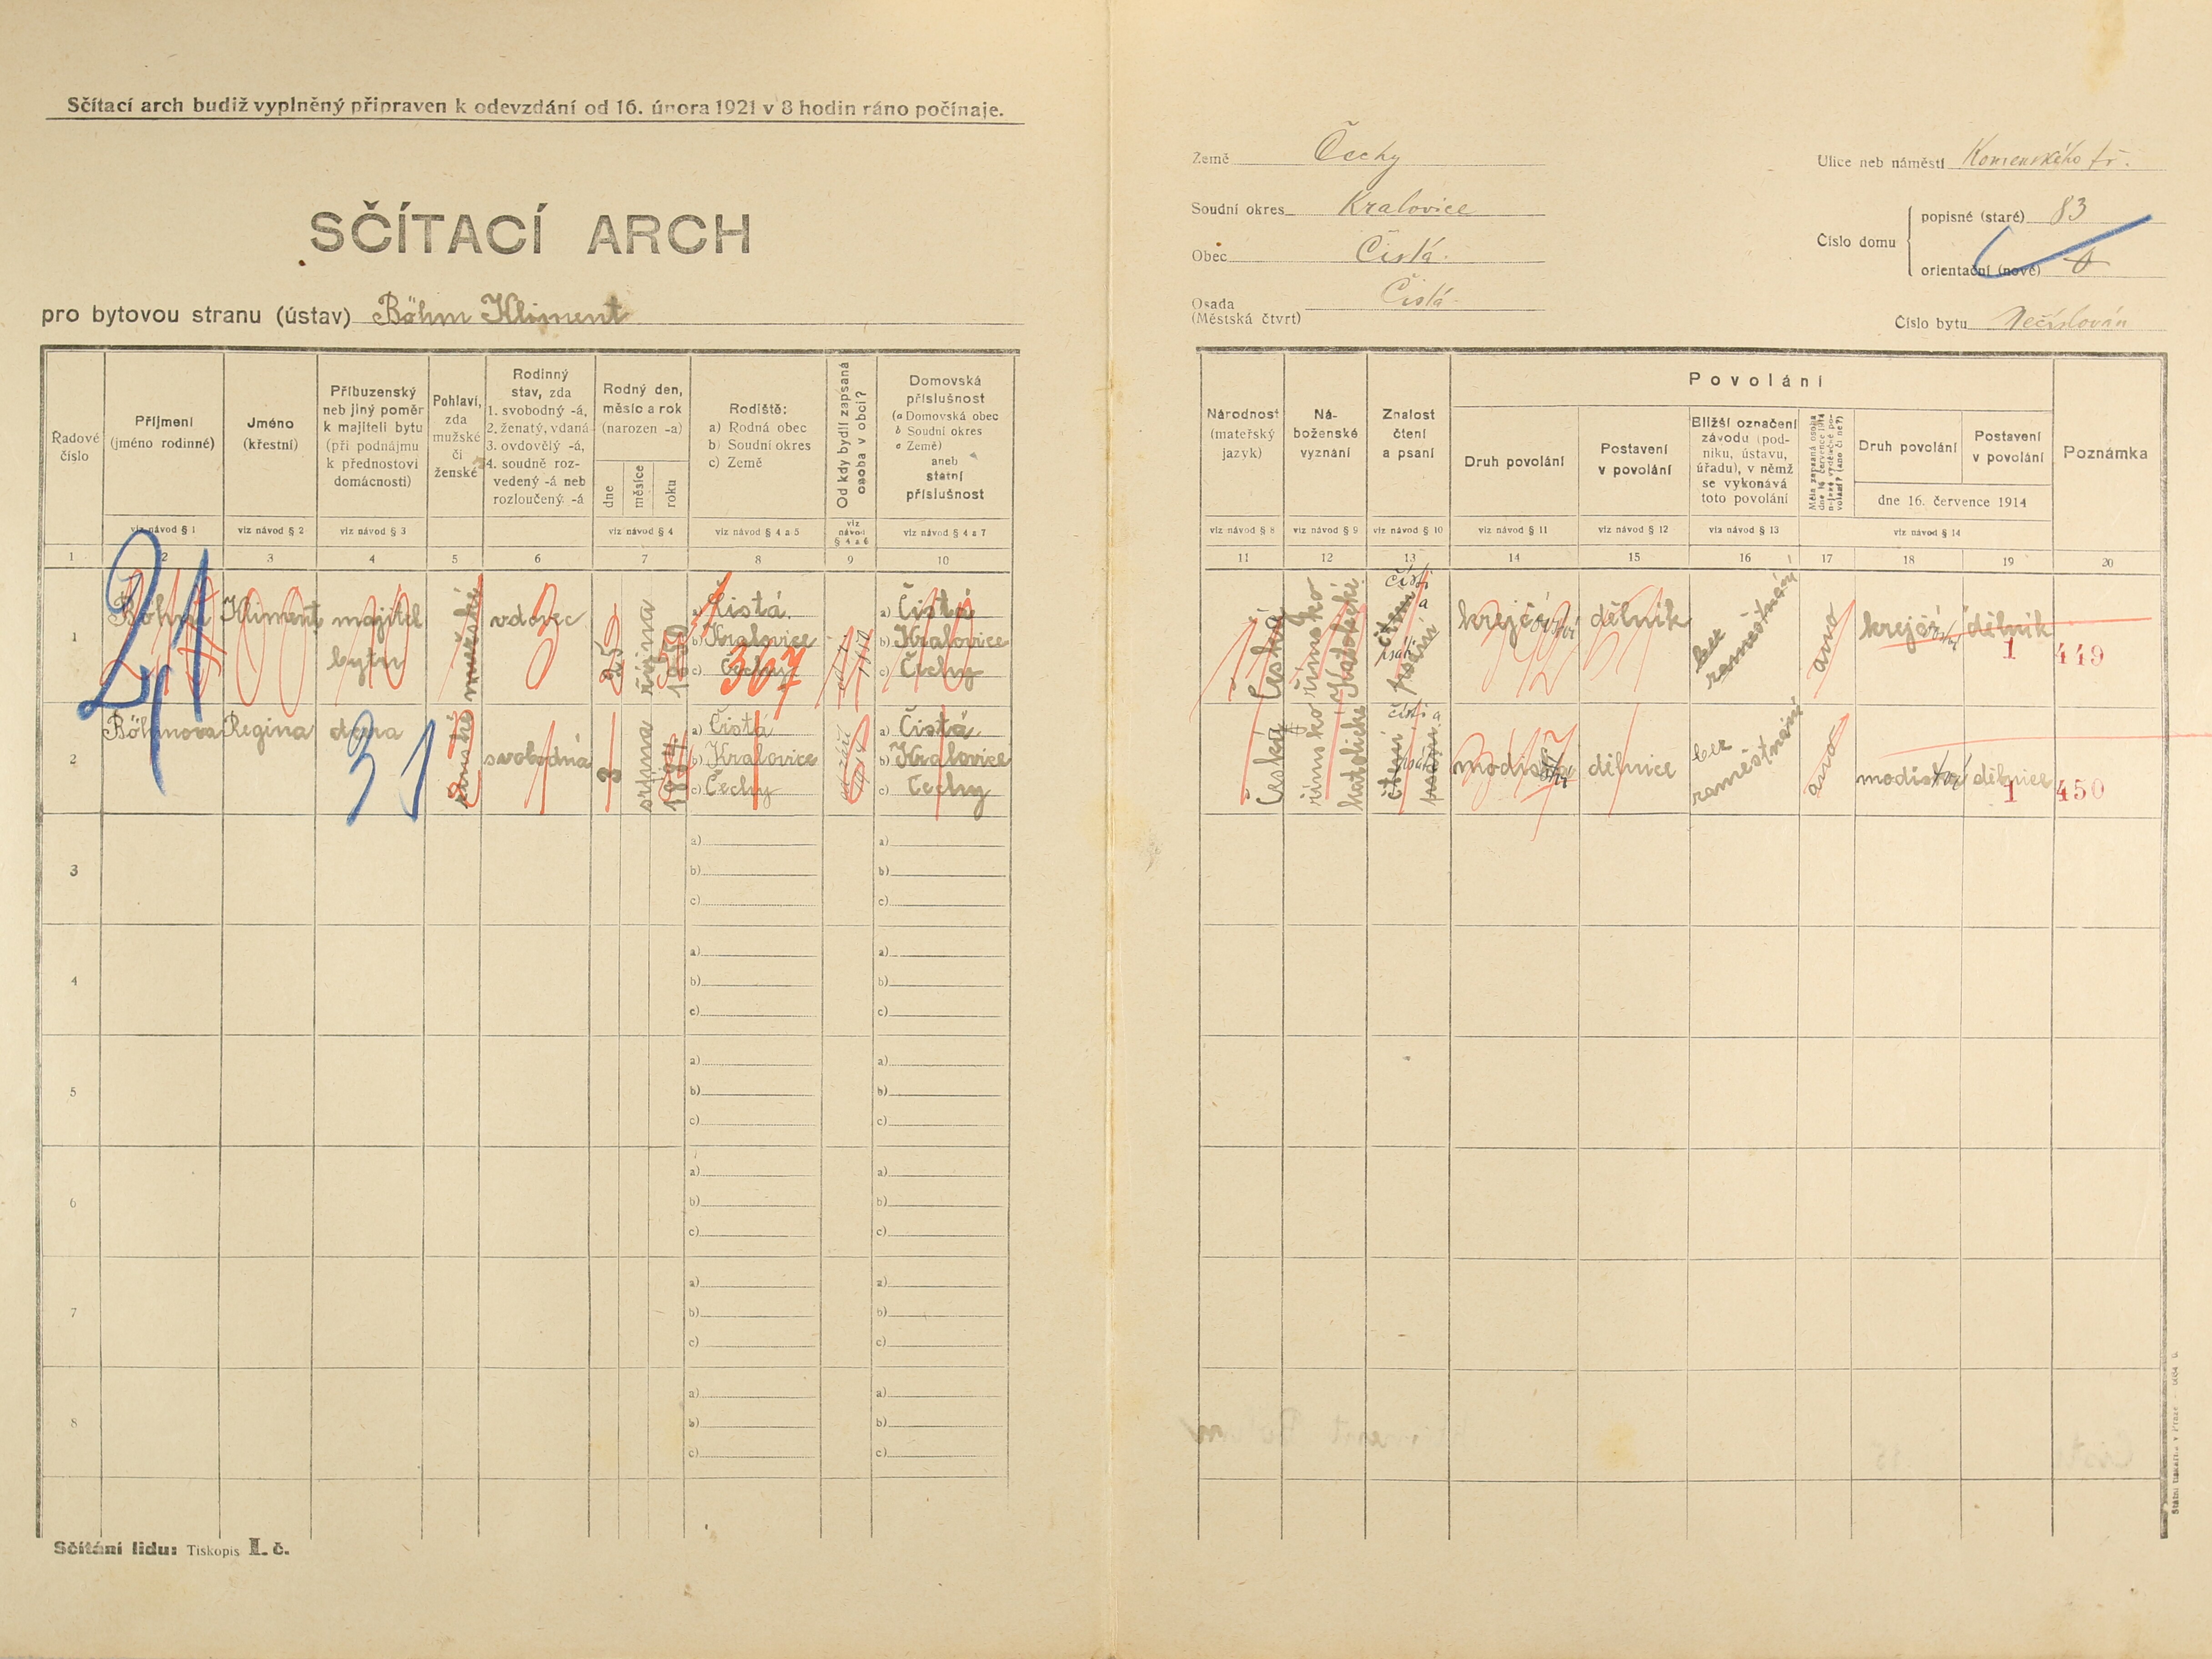 Sčítací arch budiž vyplněný připraven k odevzdání od 16. února 1921 v 8 hodin ráno počínaje.
SČÍTACÍ ARCH
pro bytovou stranu (ústav) Böhm Kliment
Země Čechy
Soudní okres Kralovice
Obec Čistá.
Osada (Městská čtvrť) Čistá
Ulice neb náměstí Komenského tř.
Číslo domu
popisné (staré) 83
orientační (nové) 0
Číslo bytu Nečíslován
Řadové číslo
Příjmení (jméno rodinné)
Jméno (křestní)
Příbuzenský neb jiný poměr k majiteli bytu (při podnájmu k přednostovi domácnosti)
Pohlaví, zda mužské či ženské
Rodinný stav, zda 1. svobodný -á, 2. ženatý, vdaná 3. ovdovělý -á, 4. soudně rozvedený -á neb rozloučený -á
Rodný den, měsíc a rok (narozen -a)
dne měsíce roku
Rodiště: a) Rodná obec b) Soudní okres c) Země
Od kdy bydlí zapsaná osoba v obci?
Domovská příslušnost (a Domovská obec b Soudní okres c Země) aneb státní příslušnost
viz návod § 1 viz návod § 2 viz návod § 3 viz návod § 4 viz návod § 4 a 5 viz návod § 4 a 6 viz návod § 4 a 7
1 2 3 4 5 6 7 8 9 10
Národnost (mateřský jazyk)
Náboženské vyznání
Znalost čtení a psaní
Povolání
Druh povolání
Postavení v povolání
Bližší označení závodu (podniku, ústavu, úřadu), v němž se vykonává toto povolání
Měla zapsaná osoba dne 16. července 1914 nějaké výdělečné povolání? (ano či ne?)
Druh povolání
Postavení v povolání
dne 16. července 1914
Poznámka
viz návod § 8 viz návod § 9 viz návod § 10 viz návod § 11 viz návod § 12 viz návod § 13 viz návod § 14
11 12 13 14 15 16 17 18 19 20
1 Böhm Kliment majitel bytu mužské vdovec 25 října 1850
a) Čistá.
b) Kralovice
c) Čechy
367
a) Čistá
b) Kralovice
c) Čechy
Česká římsko Katolické čísti a psáti krejčí dělník bez zaměstnání ano krejčí dělník 1 449
21
2 Böhmova Regina dcera ženské svobodná 3 srpna 1884
a) Čistá
b) Kralovice
c) Čechy
a) Čistá
b) Kralovice
c) Čechy
Česká římsko katolické čísti a psáti dělnice bez zaměstnání ano modiství dělnice 1 450
31
3 a) b) c) a) b) c)
4 a) b) c) a) b) c)
5 a) b) c) a) b) c)
6 a) b) c) a) b) c)
7 a) b) c) a) b) c)
8 a) b) c) a) b) c)
Sčítání lidu: Tiskopis I. č.